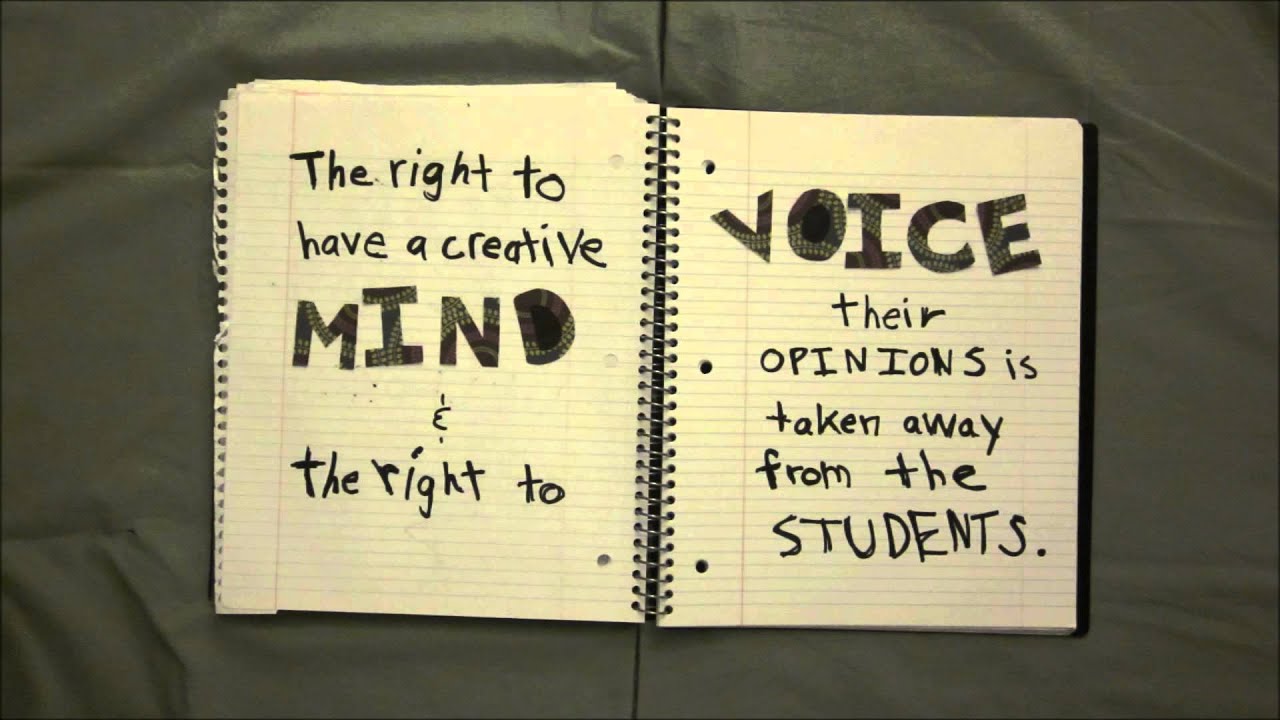 The right to
have a creative
MIND
&
the right to
VOICE
their
OPINIONS is
taken away
from the
STUDENTS.